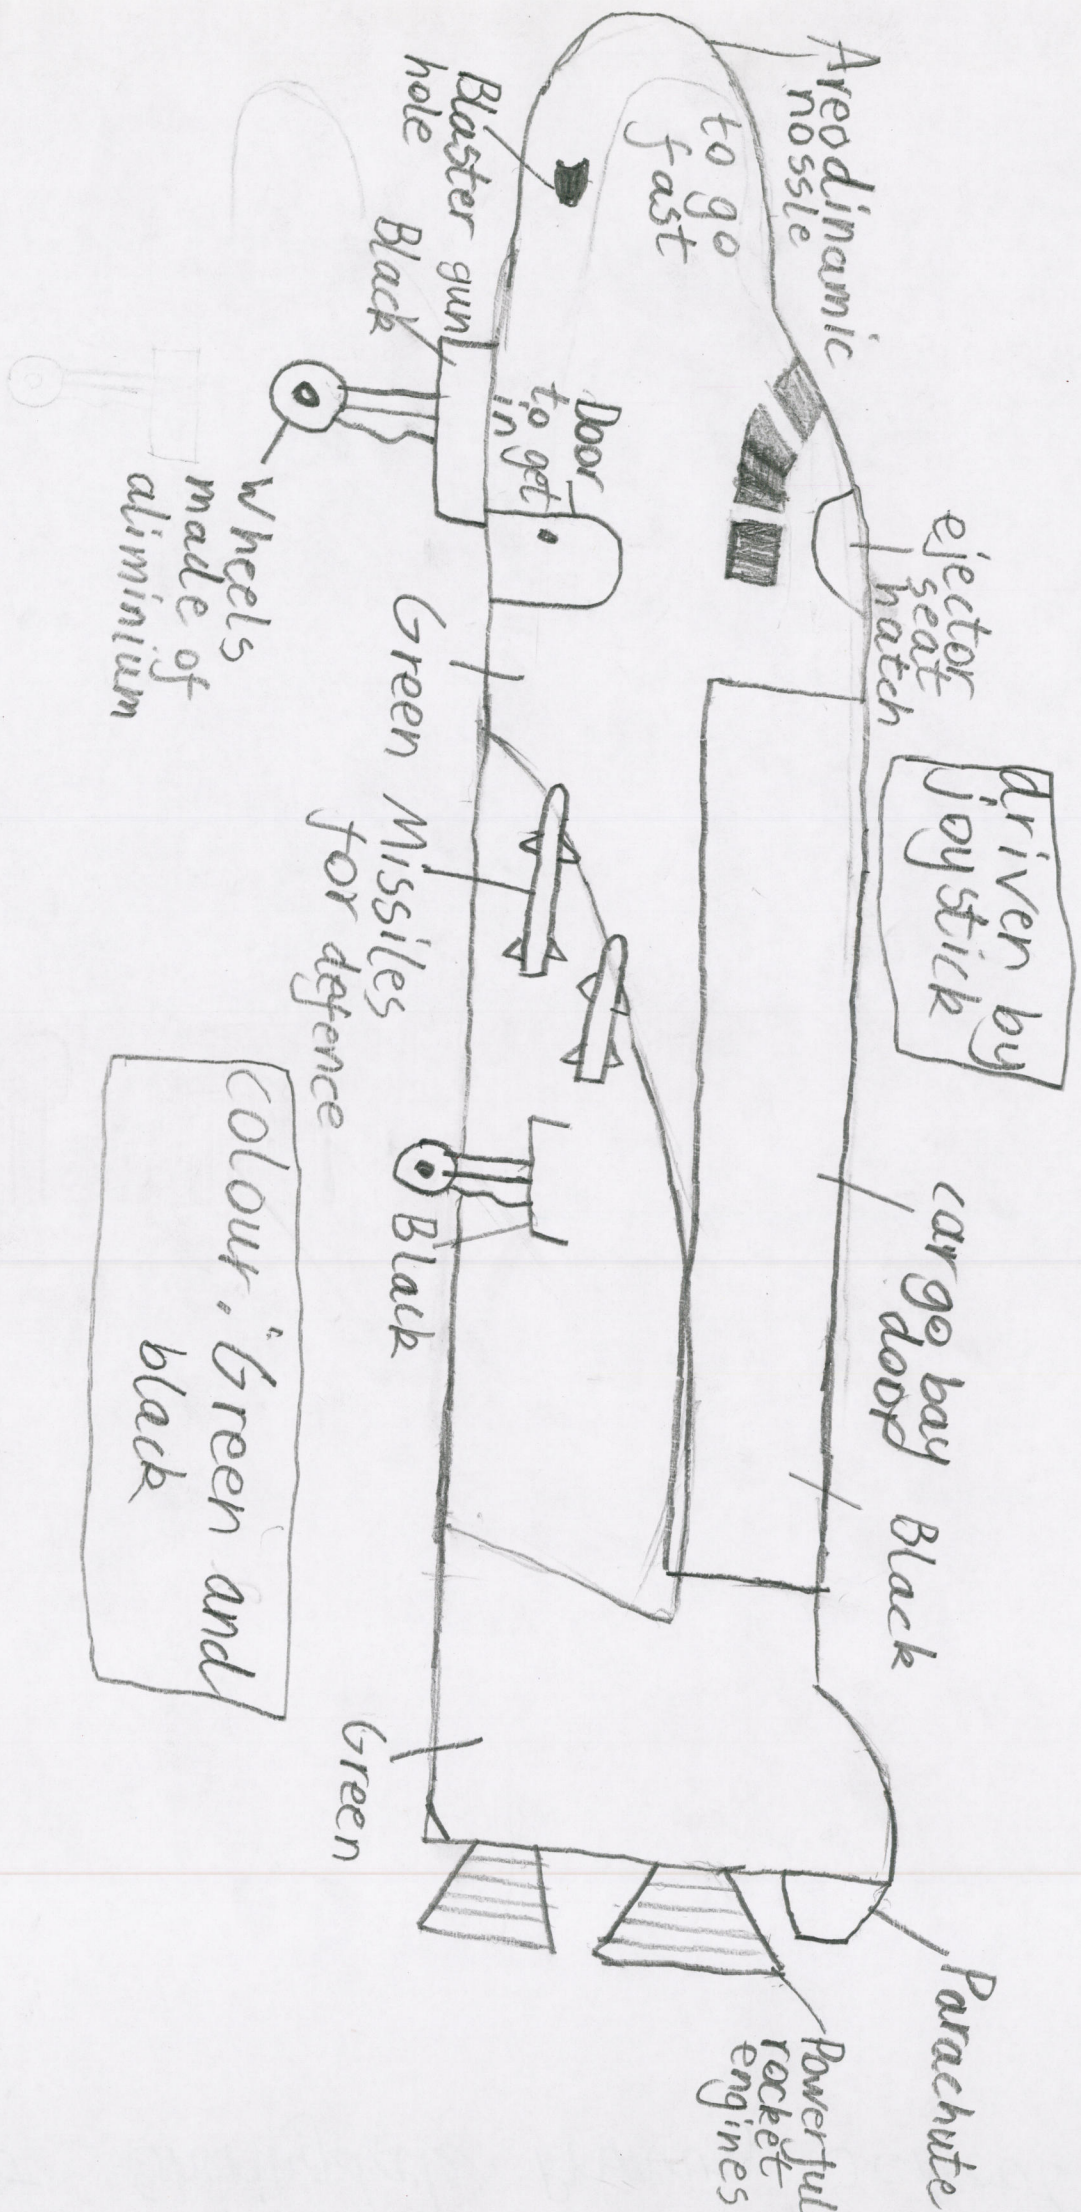 Areodinamic
nossle
to go
fast
Blaster gun
hole
Black
Door
to get
in
wheels
made of
aliminium
ejector
seat
hatch
driven by
joystick
Green
Missiles
for defence
cargo bay
door
Black
Black
colour: Green and
black
Green
Parachute
Powerful
rocket
engines